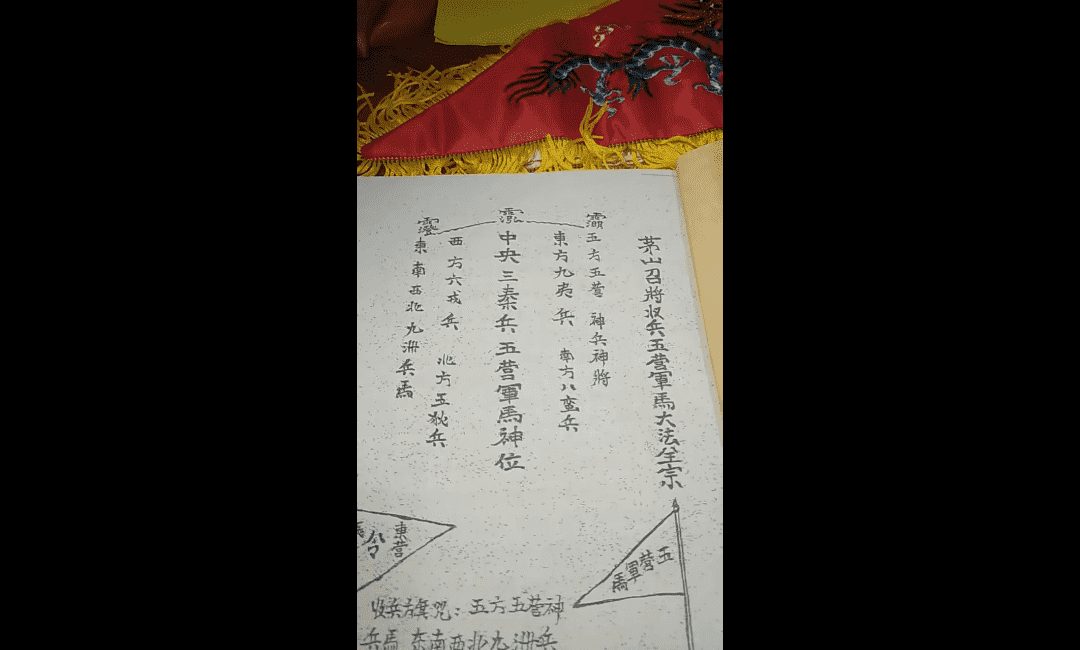 茅山召將收兵五營軍馬大法全宗
五方五營 神兵神將
東方九夷兵 南方八蛮兵
中央三秦兵五营軍馬神位
西方六戎兵 北方五狄兵
東南西北九洲兵馬
五营軍馬
東营
令
收兵旗咒：五方五营神
兵馬 东南西北九洲兵